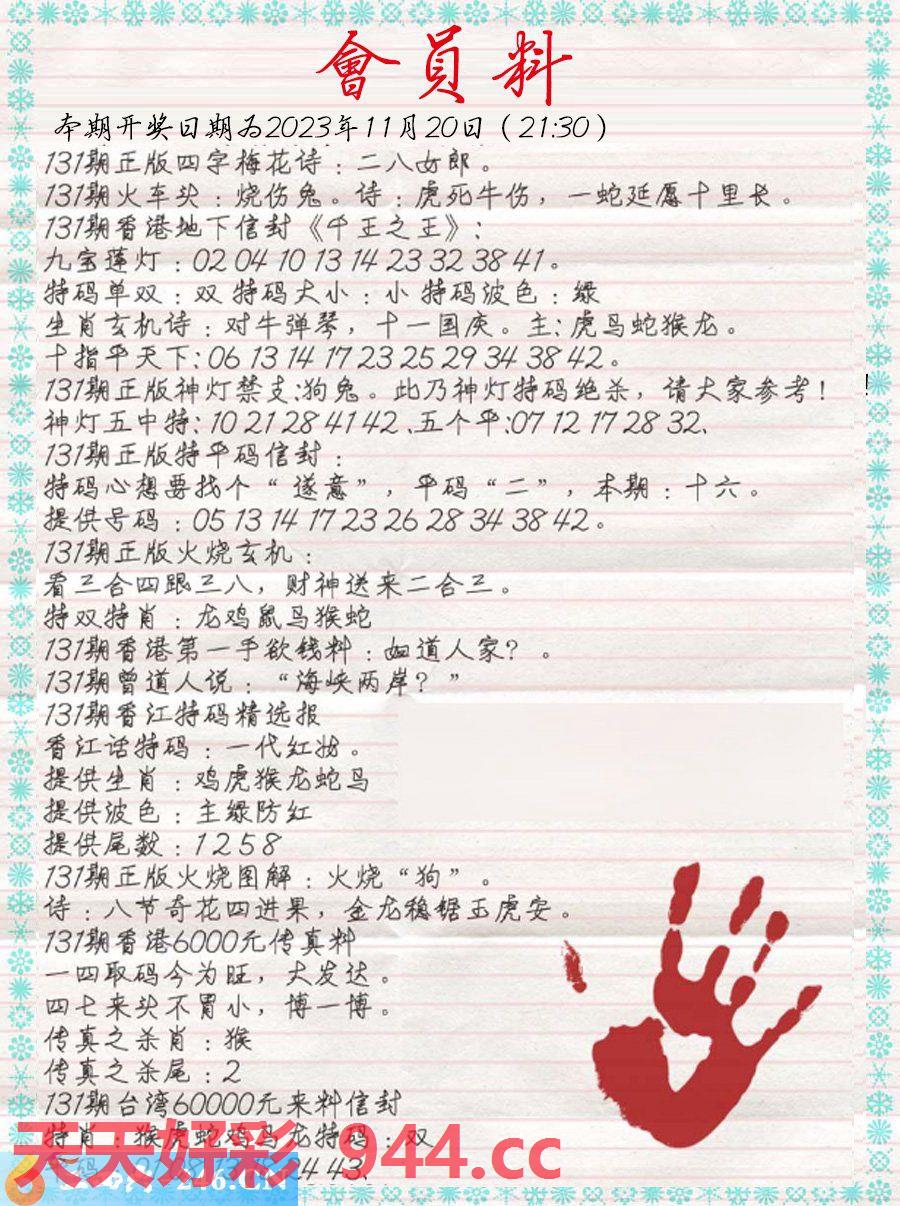 會員料
本期开奖日期为2023年11月20日（21:30）
131期正版四字梅花诗：二八女郎。
131期火车头：烧伤兔。诗：虎死牛伤，一蛇延愿十里长。
131期香港地下信封《千王之王》：
九宝莲灯：02 04 10 13 14 23 32 38 41。
特码单双：双 特码大小：小 特码波色：绿
生肖玄机诗：对牛弹琴，十一国庆。主：虎鸟蛇猴龙。
十指平天下：06 13 14 17 23 25 29 34 38 42。
131期正版神灯禁支:狗兔。此乃神灯特码绝杀，请大家参考！
神灯五中特：10 21 28 41 42、五个平:07 12 17 28 32、
131期正版特平码信封：
特码心想要找个“遂意”，平码“二”，本期：十六。
提供号码：05 13 14 17 23 26 28 34 38 42。
131期正版火烧玄机：
看三合四跟三八，财神送来二合三。
特双特肖：龙鸡鼠马猴蛇
131期香港第一手欲钱料：知道人家？。
131期曾道人说：“海峡两岸？”
131期香江特码精选报
香江话特码：一代红妆。
提供生肖：鸡虎猴龙蛇马
提供波色：主绿防红
提供尾数：1 2 5 8
131期正版火烧图解：火烧“狗”。
诗：八节奇花四进果，金龙稳锯玉虎安。
131期香港6000元传真料
一四取码今为旺，大发达。
四七来头不胃小，博一博。
传真之杀肖：猴
传真之杀尾：2
131期台湾60000元来料信封
特肖：猴虎蛇鸡马龙特码：双
天天好彩 944.cc
246.CN